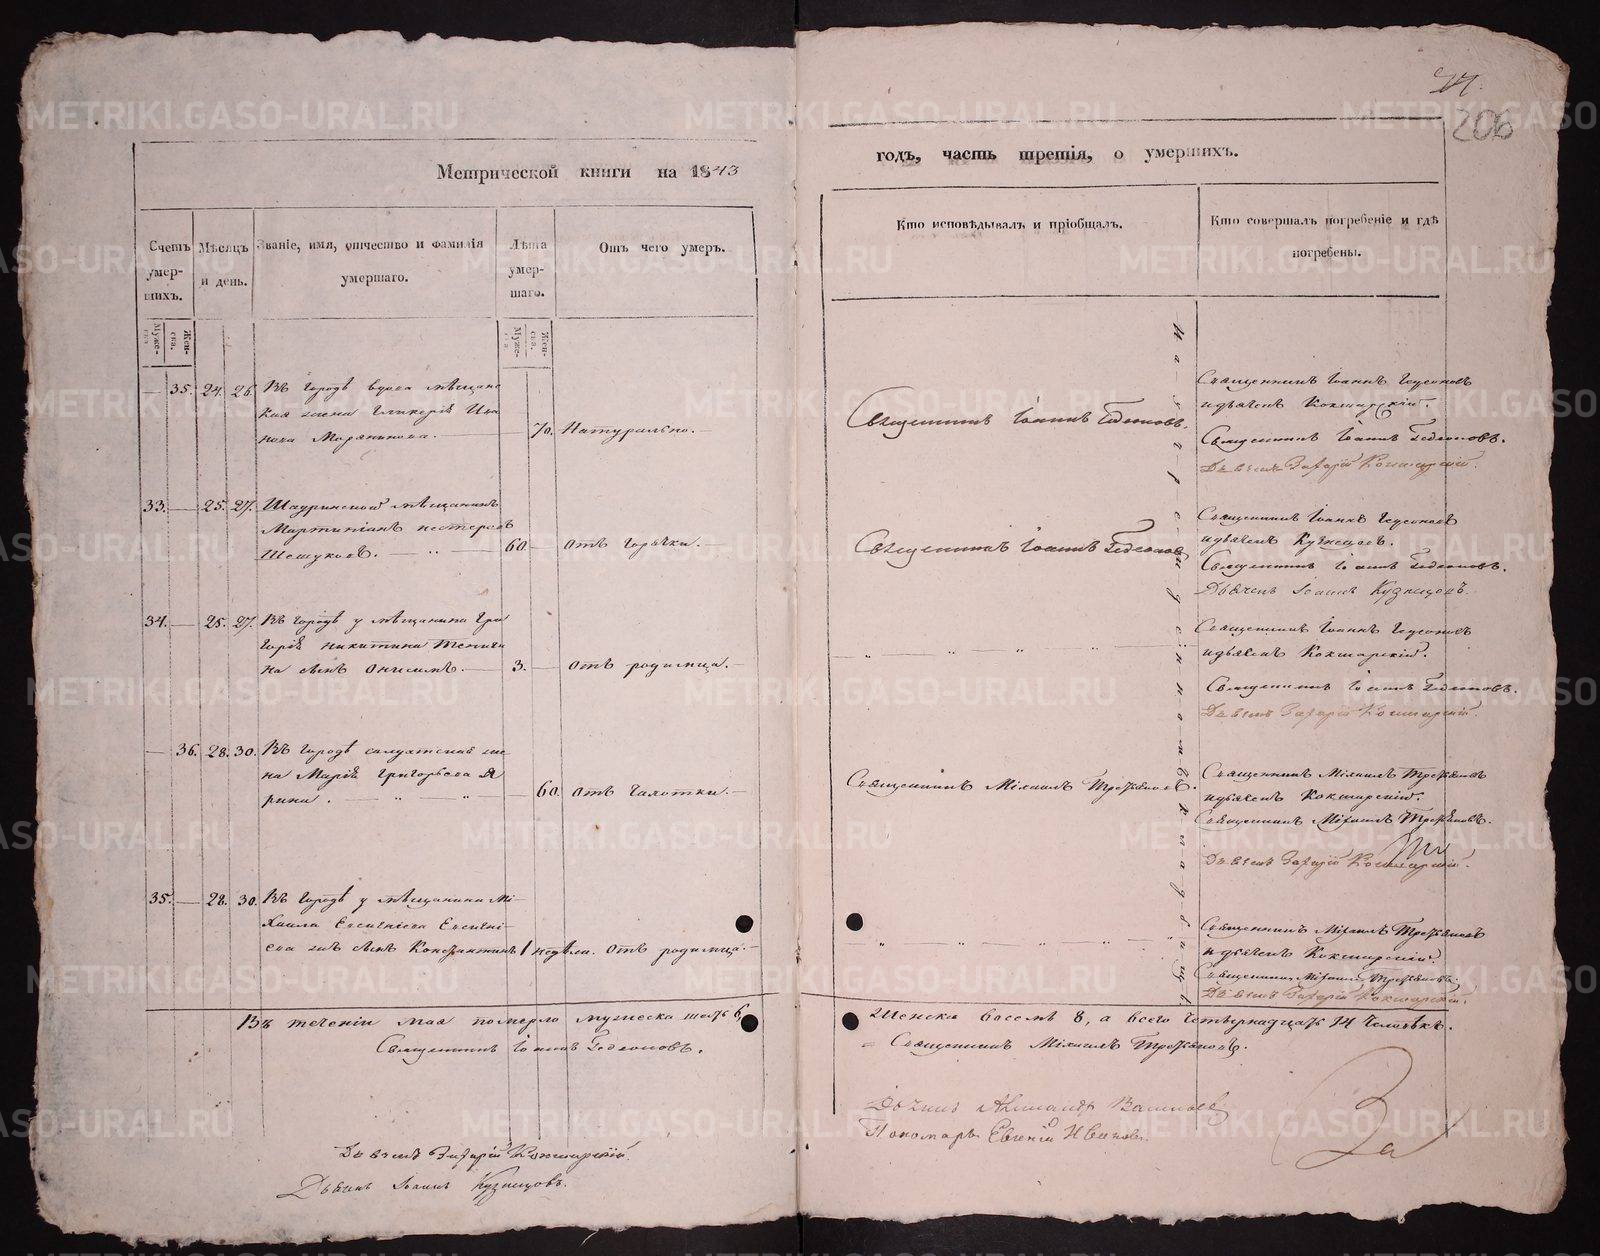 206
Метрической книги на 1843
годъ, часть третія, о умершихъ.
Счетъ умер-
шихъ.
Мѣсяцъ
и день.
Званіе, имя, отчество и фамилія
умершаго.
Лѣта
умер-
шаго.
Отъ чего умеръ.
Кто исповѣдывалъ и пріобщалъ.
Кто совершалъ погребеніе и гдѣ
погребены.
Муже-
ска.
Жен-
ска.
Муже-
ска.
Жен-
ска.
35. 24. 26. Въ городѣ вдова мѣщанс
кая жена Гликерія Ива
нова 70. Натурально.
Священникъ Іоаннъ Гедеоновъ.
Священникъ Іоаннъ Гедеоновъ
и дьяконъ Кокшарскій.
Священникъ Іоаннъ Гедеоновъ.
Дьяконъ Захарій Кокшарскій.
33. 25. 27. мѣщанинъ
Мартиніанъ Нестеровъ
Шешуковъ. 60. отъ горячки.
Священникъ Іоаннъ Гедеоновъ
Священникъ Іоаннъ Гедеоновъ
и дьяконъ Кузнецовъ.
Священникъ Іоаннъ Гедеоновъ.
Дьяконъ Іоаннъ Кузнецовъ.
34. 25. 27. Въ городѣ у мѣщанина Гри
горія Никитина
на сынъ Онисимъ. 3. отъ родимца.
Священникъ Іоаннъ Гедеоновъ
и дьяконъ Кокшарскій.
Священникъ Іоаннъ Гедеоновъ.
Дьяконъ Захарій Кокшарскій.
36. 28. 30. Въ городѣ солдатская же
на Марія Григорьева Я
рина. 60. отъ чахотки.
Священникъ Міхаилъ
Священникъ Міхаилъ
и дьяконъ Кокшарскій.
Священникъ Міхаилъ
Дьяконъ Захарій Кокшарскій.
35. 28. 30. Въ городѣ у мѣщанина Мі-
хаила Евсигніева Евсигні-
ева сынъ Константинъ 1 недѣли. отъ родимца.
Священникъ Міхаилъ
и дьяконъ Кокшарскій.
Священникъ Міхаилъ
Дьяконъ Захарій Кокшарскій.
Въ теченіи мая померло мужеска шесть 6,
женска восемь 8, а всего четырнадцать 14 человѣкъ.
Священникъ Іоаннъ Гедеоновъ.
Священникъ Міхаилъ
Дьячекъ Александръ
Пономарь Евгеній Ивановъ.
За
Дьяконъ Захарій Кокшарскій.
Дьяконъ Іоаннъ Кузнецовъ.
METRIKI.GASO-URAL.RU